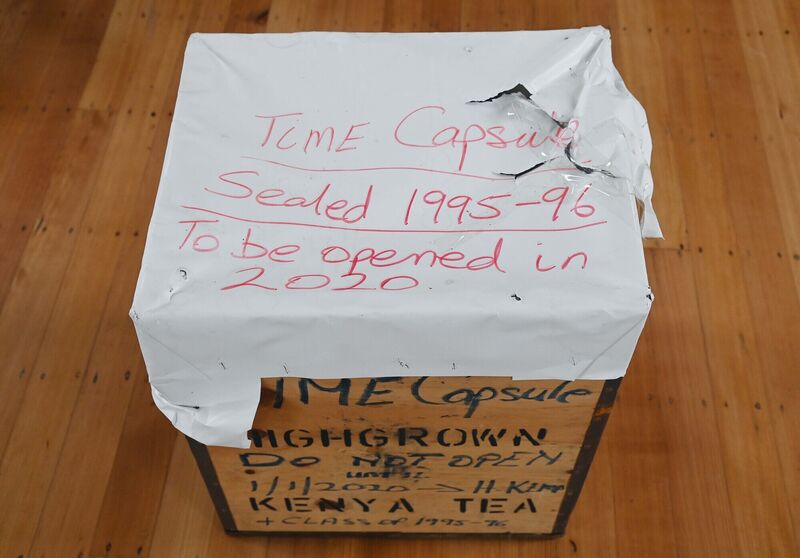 TIME Capsule
Sealed 1995-96
To be opened in
2020.
TIME Capsule
HIGHGROWN
DO NOT OPEN
UNTIL
1/1/2020 → H.
KENYA TEA
+ CLASS OF 1995-96